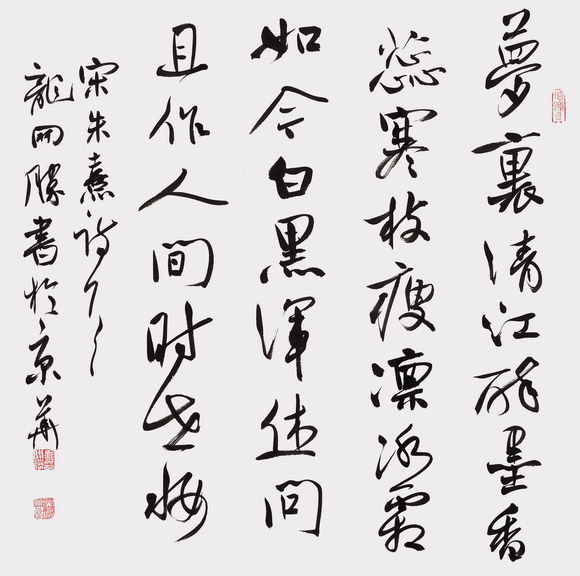 夢裏清江醉墨香
蕊寒枝瘦凛冰霜
如今白黑渾休問
且作人間时世妝
宋朱熹詩
龍開勝書於京華